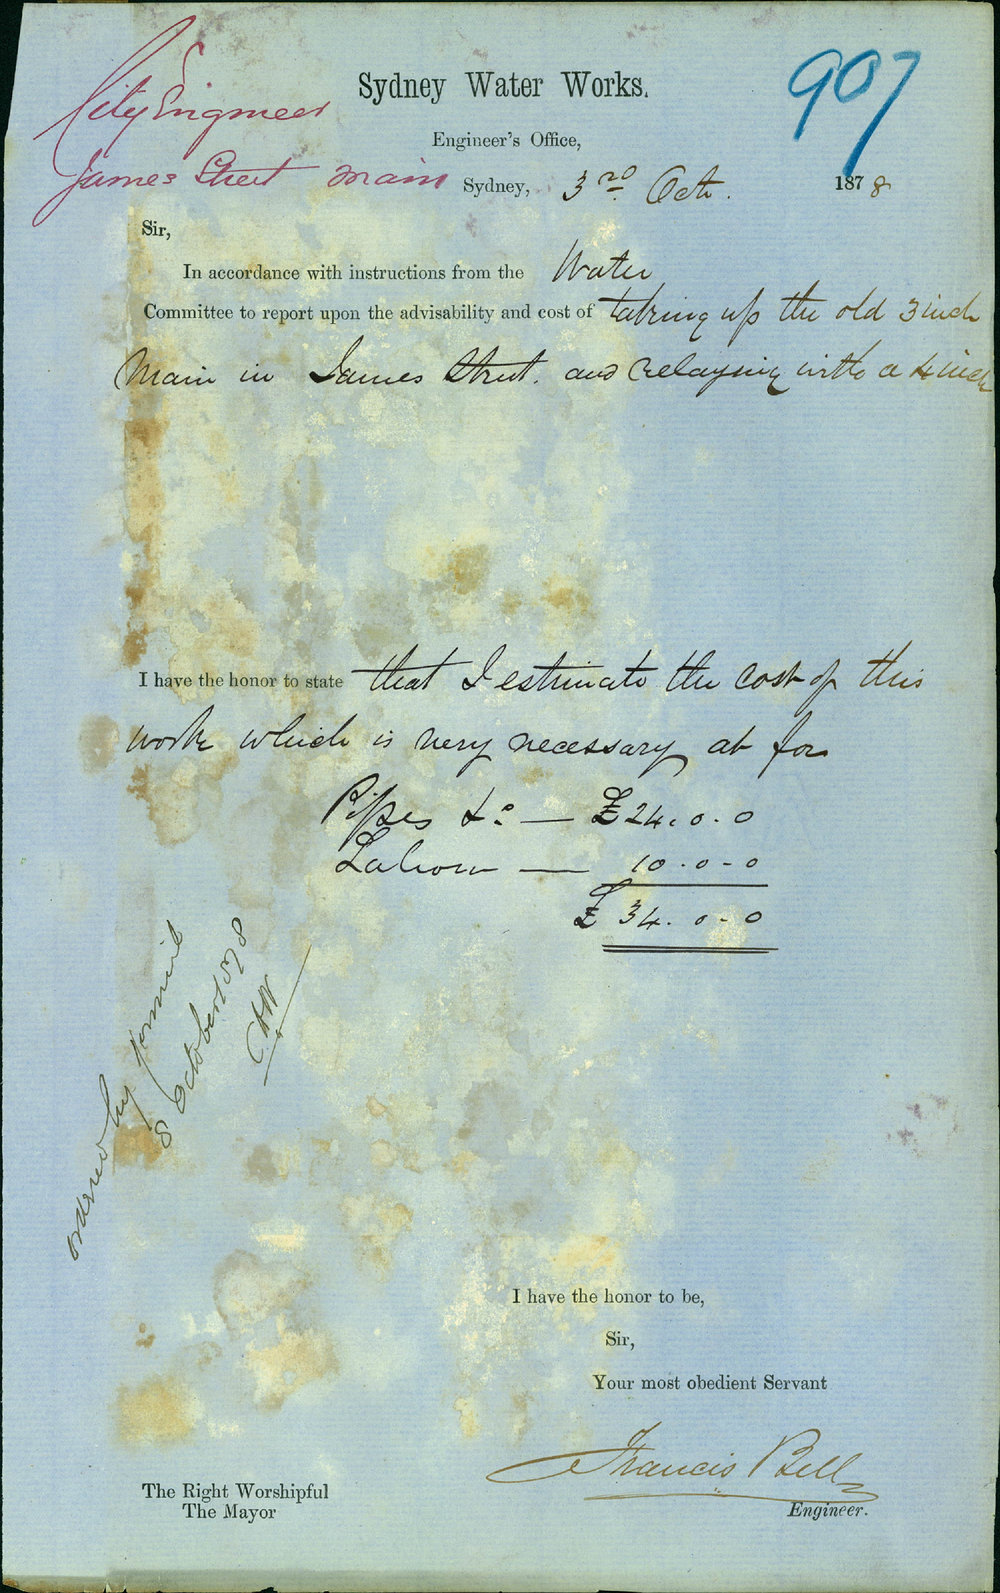 907
City Engineer
James Street Main
Sydney Water Works.
Engineer's Office,
Sydney, 3rd Oct. 1878
Sir,
In accordance with instructions from the Water
Committee to report upon the advisability and cost of taking up the old 3 inch
Main in James Street. and relaying with a 4 inch
I have the honor to state that I estimate the cost of this
work which is very necessary at for
Pipes &c — £24.0.0
Labour — 10.0-0
£ 34.0-0
ordered by
8 October 1878
CHW
I have the honor to be,
Sir,
Your most obedient Servant
Francis Bell
Engineer.
The Right Worshipful
The Mayor